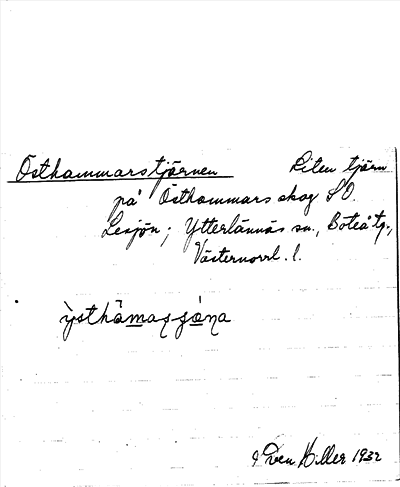 Östhammarstjärnen Liten tjärn
på Östhammars skog SO.
Lesjön; Ytterlännäs sn., Boteå tg.,
Västernorrl. l.
Sven Hiller 1932